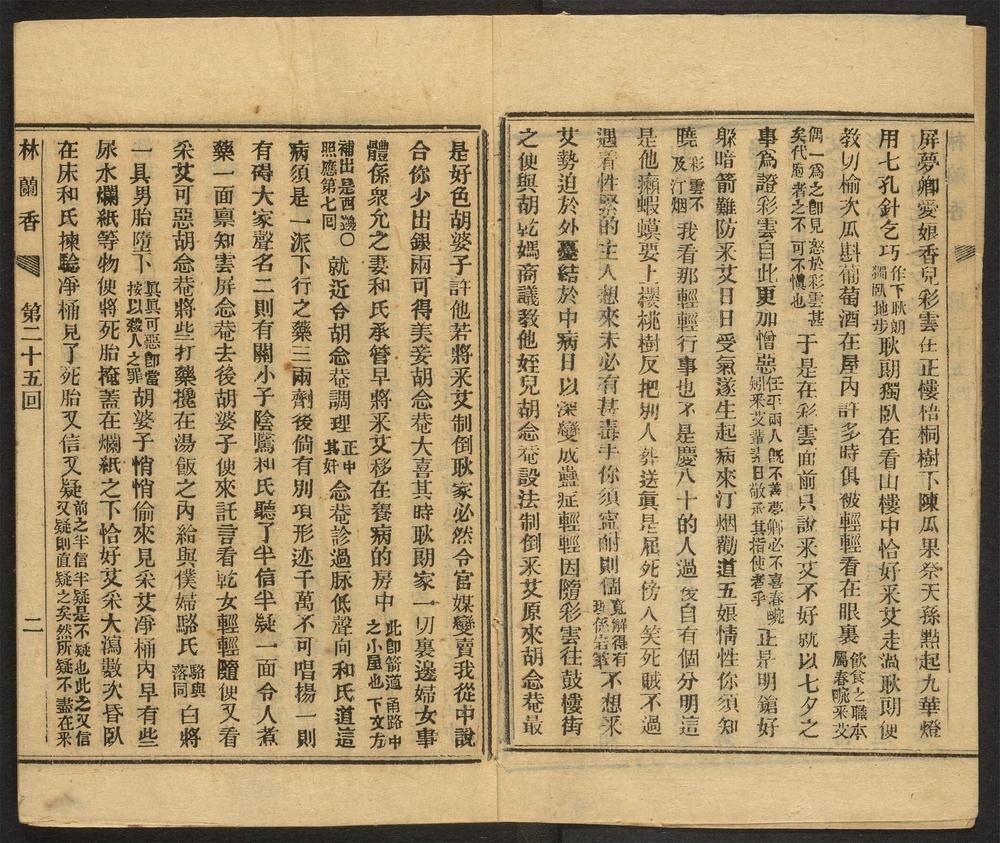 屏夢卿愛娘香兒彩雲在正樓梧桐樹下陳瓜果祭天孫㸃起九華燈
用七孔針乞巧作下耿朗獨臥地步耿朗獨臥在看山樓中恰好采艾走過耿朗便
教切榆次瓜斟葡萄酒在屋內許多時俱被輕輕看在眼裏飲食之職本屬春畹采艾
偶一爲之卽見怒於彩雲甚矣代庖者之不可不慎也于是在彩雲面前只說采艾不好就以七夕之
事爲證彩雲自此更加憎惡任平兩人旣不善夢卿必不喜春畹采艾日敬承其指使者乎正是明鎗好
躲暗箭難防采艾日日受氣遂生起病來汀烟勸道五娘情性你須知
曉彩雲不及汀烟我看那輕輕行事也不是慶八十的人過後自有個分明這
是他癩蝦蟆要上櫻桃樹反把別人葬送眞是屈死傍人笑死賊不過
遇着性緊的主人想來未必有甚毒手你須寧耐則個寬解得有不想采
艾勢迫於外憂結於中病日以深變成蠱症輕輕因隨彩雲往鼓樓街
之便與胡乾媽商議教他姪兒胡念菴設法制倒采艾原來胡念菴最
是好色胡婆子許他若將采艾制倒耿家必然令官媒變賣我從中說
合你少出銀兩可得美妾胡念菴大喜其時耿朗家一切裏邊婦女事
體係衆允之妻和氏承管早將采艾移在養病的房中此卽箭道甬路中之小屋也下文方
補出是西邊〇照應第七囘就近令胡念菴調理正中其奸念菴診過脉低聲向和氏道這
病須是一派下行之藥三兩劑後倘有別項形迹千萬不可唱揚一則
有碍大家聲名二則有關小子陰騭和氏聽了半信半疑一面令人煮
藥一面稟知雲屏念菴去後胡婆子便來託言看乾女輕輕隨便又看
采艾可惡胡念菴將些打藥攙在湯飯之內給與僕婦駱氏駱與落同白將
一具男胎墮下眞眞可惡卽當按以殺人之罪胡婆子悄悄偷來見采艾凈桶內早有些
尿水爛紙等物便將死胎掩蓋在爛紙之下恰好艾采大瀉數次昏臥
在床和氏揀驗凈桶見了死胎又信又疑前之半信半疑是不疑也此之又信又疑則直疑之矣然所疑不盡在采
林蘭香　第二十五回　二